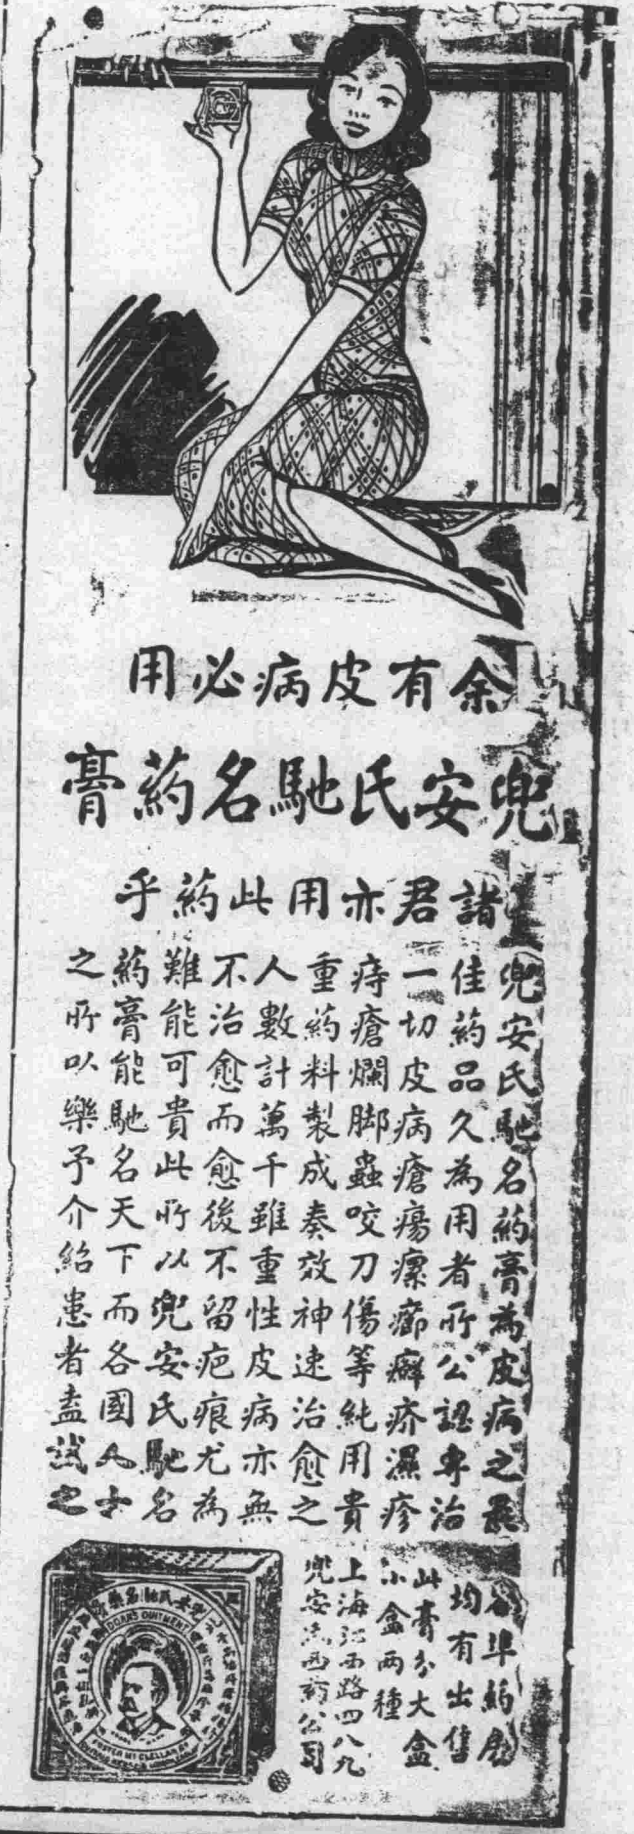 余有皮病必用
兜安氏馳名药膏
諸君亦用此药乎
兜安氏馳名药膏為皮病之最
佳药品久為用者所公認專治
一切皮病瘡瘍瘰癤癬疥濕疹
痔瘡爛脚蟲咬刀傷等純用貴
重药料製成奏效神速治愈之
人數計萬千雖重性皮病亦無
不治愈而愈後不留疤痕尤為
難能可貴此所以兜安氏馳名
药膏能馳名天下而各國人士
之所以樂予介紹患者盍試之
各埠药房
均有出售
此膏分大盒
小盒两種
上海江西路四八九
兜安氏西药公司
DOAN'S OINTMENT
FOSTER McCLELLAN Co